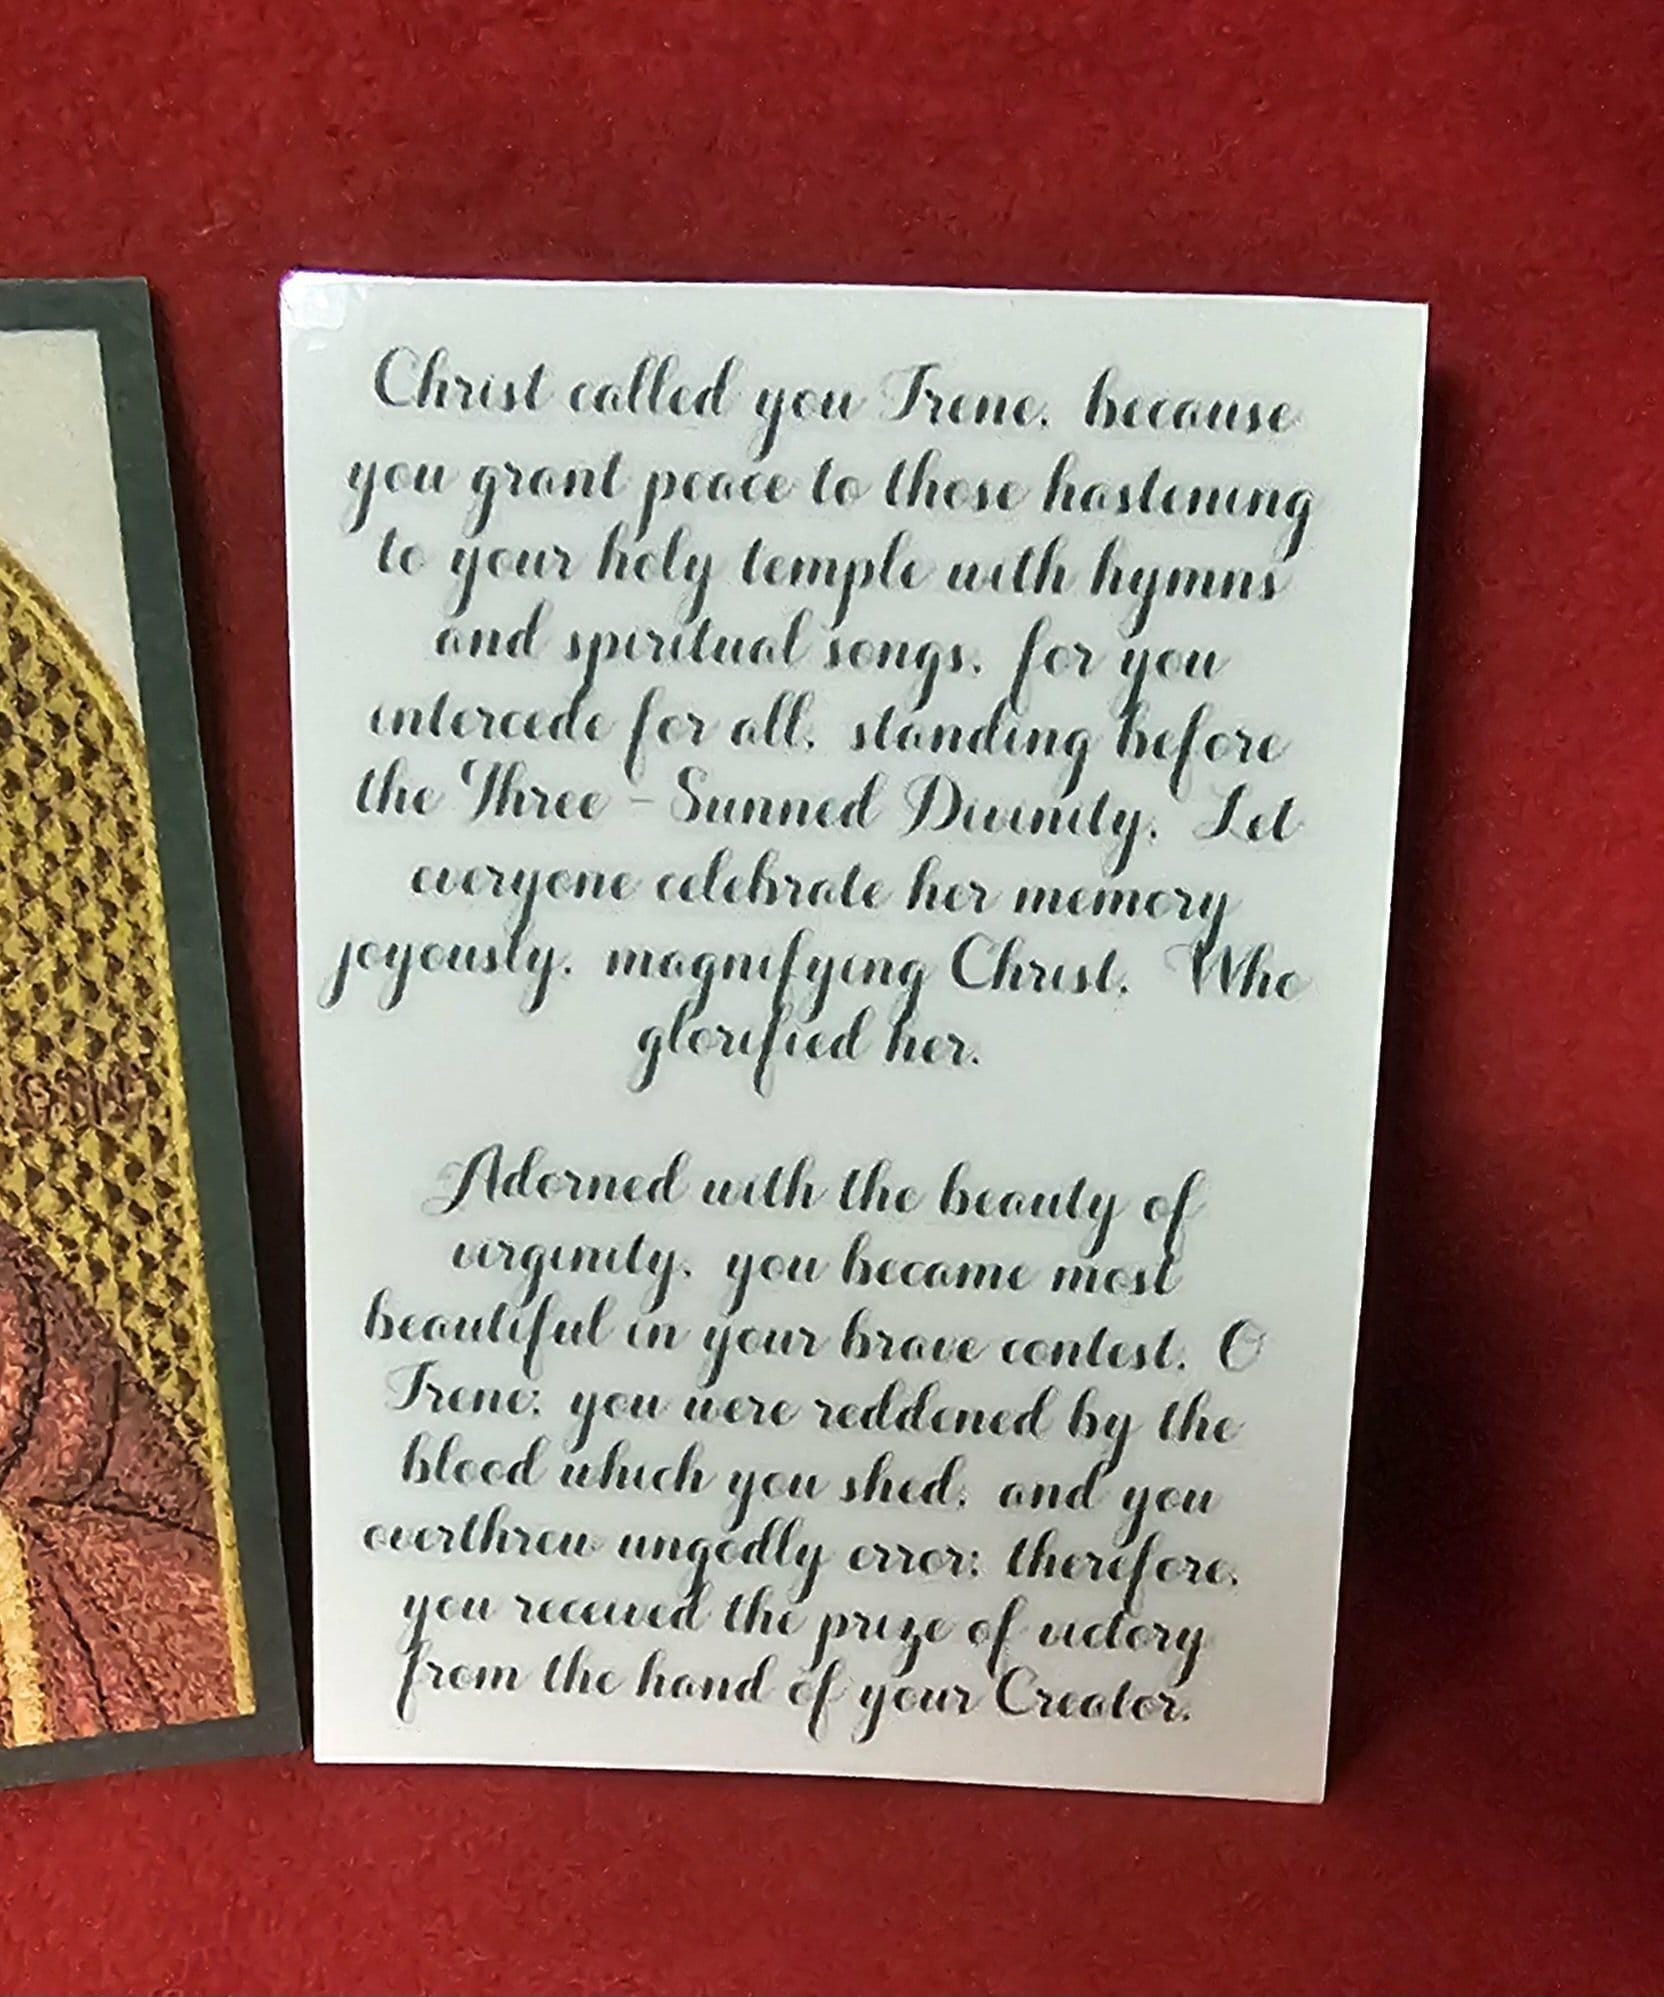 Christ called you Irene, because
you grant peace to those hastening
to your holy temple with hymns
and spiritual songs, for you
intercede for all, standing before
the Three - Sunned Divinity. Let
everyone celebrate her memory
joyously, magnifying Christ, Who
glorified her.
Adorned with the beauty of
virginity, you became most
beautiful in your brave contest, O
Irene; you were reddened by the
blood which you shed, and you
overthrew ungodly error; therefore,
you received the prize of victory
from the hand of your Creator.